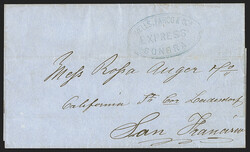 EXPRESS
SONORA
Mess Rossa Auger & Co
California St Cor Leidesdorf
San Francisco